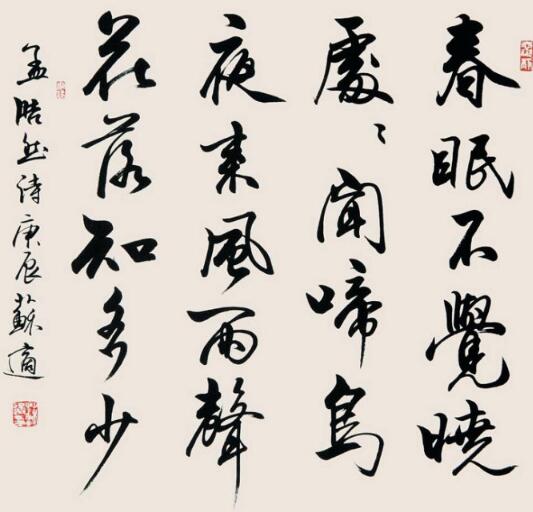 春眠不覺曉
處〻聞啼鳥
夜来風雨聲
花落知多少
孟浩然诗庚辰蘇適